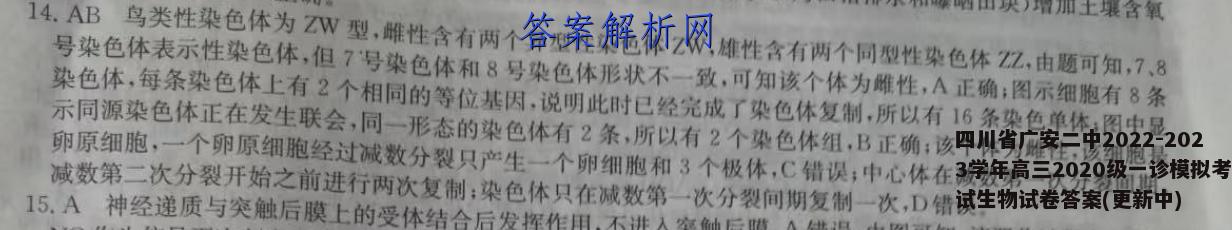 增加土壤含氧
14. AB 鸟类性染色体为 ZW 型,雌性含有两个 ZW,雄性含有两个同型性染色体 ZZ,由题可知,7、8
号染色体表示性染色体,但 7 号染色体和 8 号染色体形状不一致,可知该个体为雌性,A 正确;图示细胞有 8 条
染色体,每条染色体上有 2 个相同的等位基因,说明此时已经完成了染色体复制,所以有 16 条染色单体;图中显
示同源染色体正在发生联会,同一形态的染色体有 2 条,所以有 2 个染色体组,B 正确;该
卵原细胞,一个卵原细胞经过减数分裂只产生一个卵细胞和 3 个极体,C 错误;中心体在
减数第二次分裂开始之前进行两次复制;染色体只在减数第一次分裂间期复制一次,D 错误
15. A 神经递质与突触后膜上的受体结合后发挥作用,不进入突触后膜,A 错误
答案解析网
四川省广安二中2022-202
3学年高三2020级一诊模拟考
试生物试卷答案(更新中)